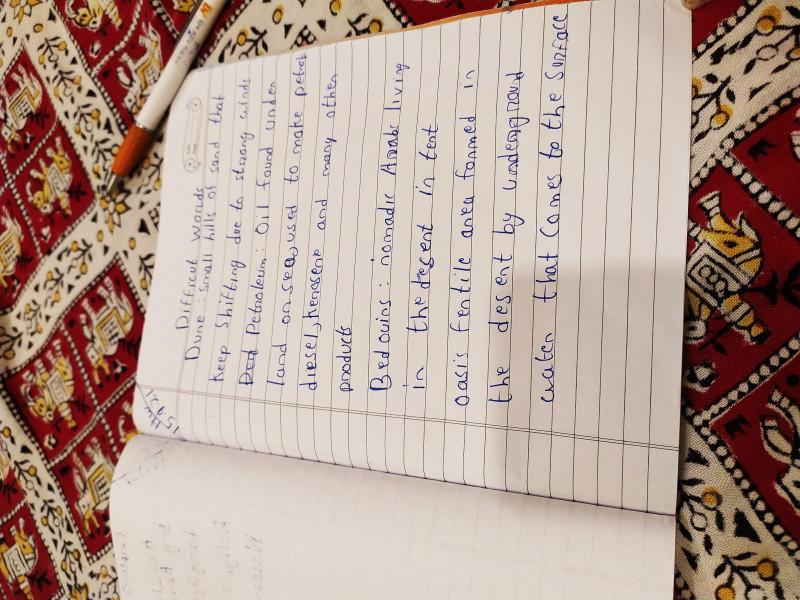 H.W
15.9.21
Difficult words
Dune : small hills of sand that
keep shifting due to strong winds
Petroleum : Oil found under
land or sea, used to make petrol
diesel, kerosene and many other
products
Bedouins : nomadic Arabs living
in the desert in tent
oasis fertile area formed in
the desert by underground
water that comes to the surface